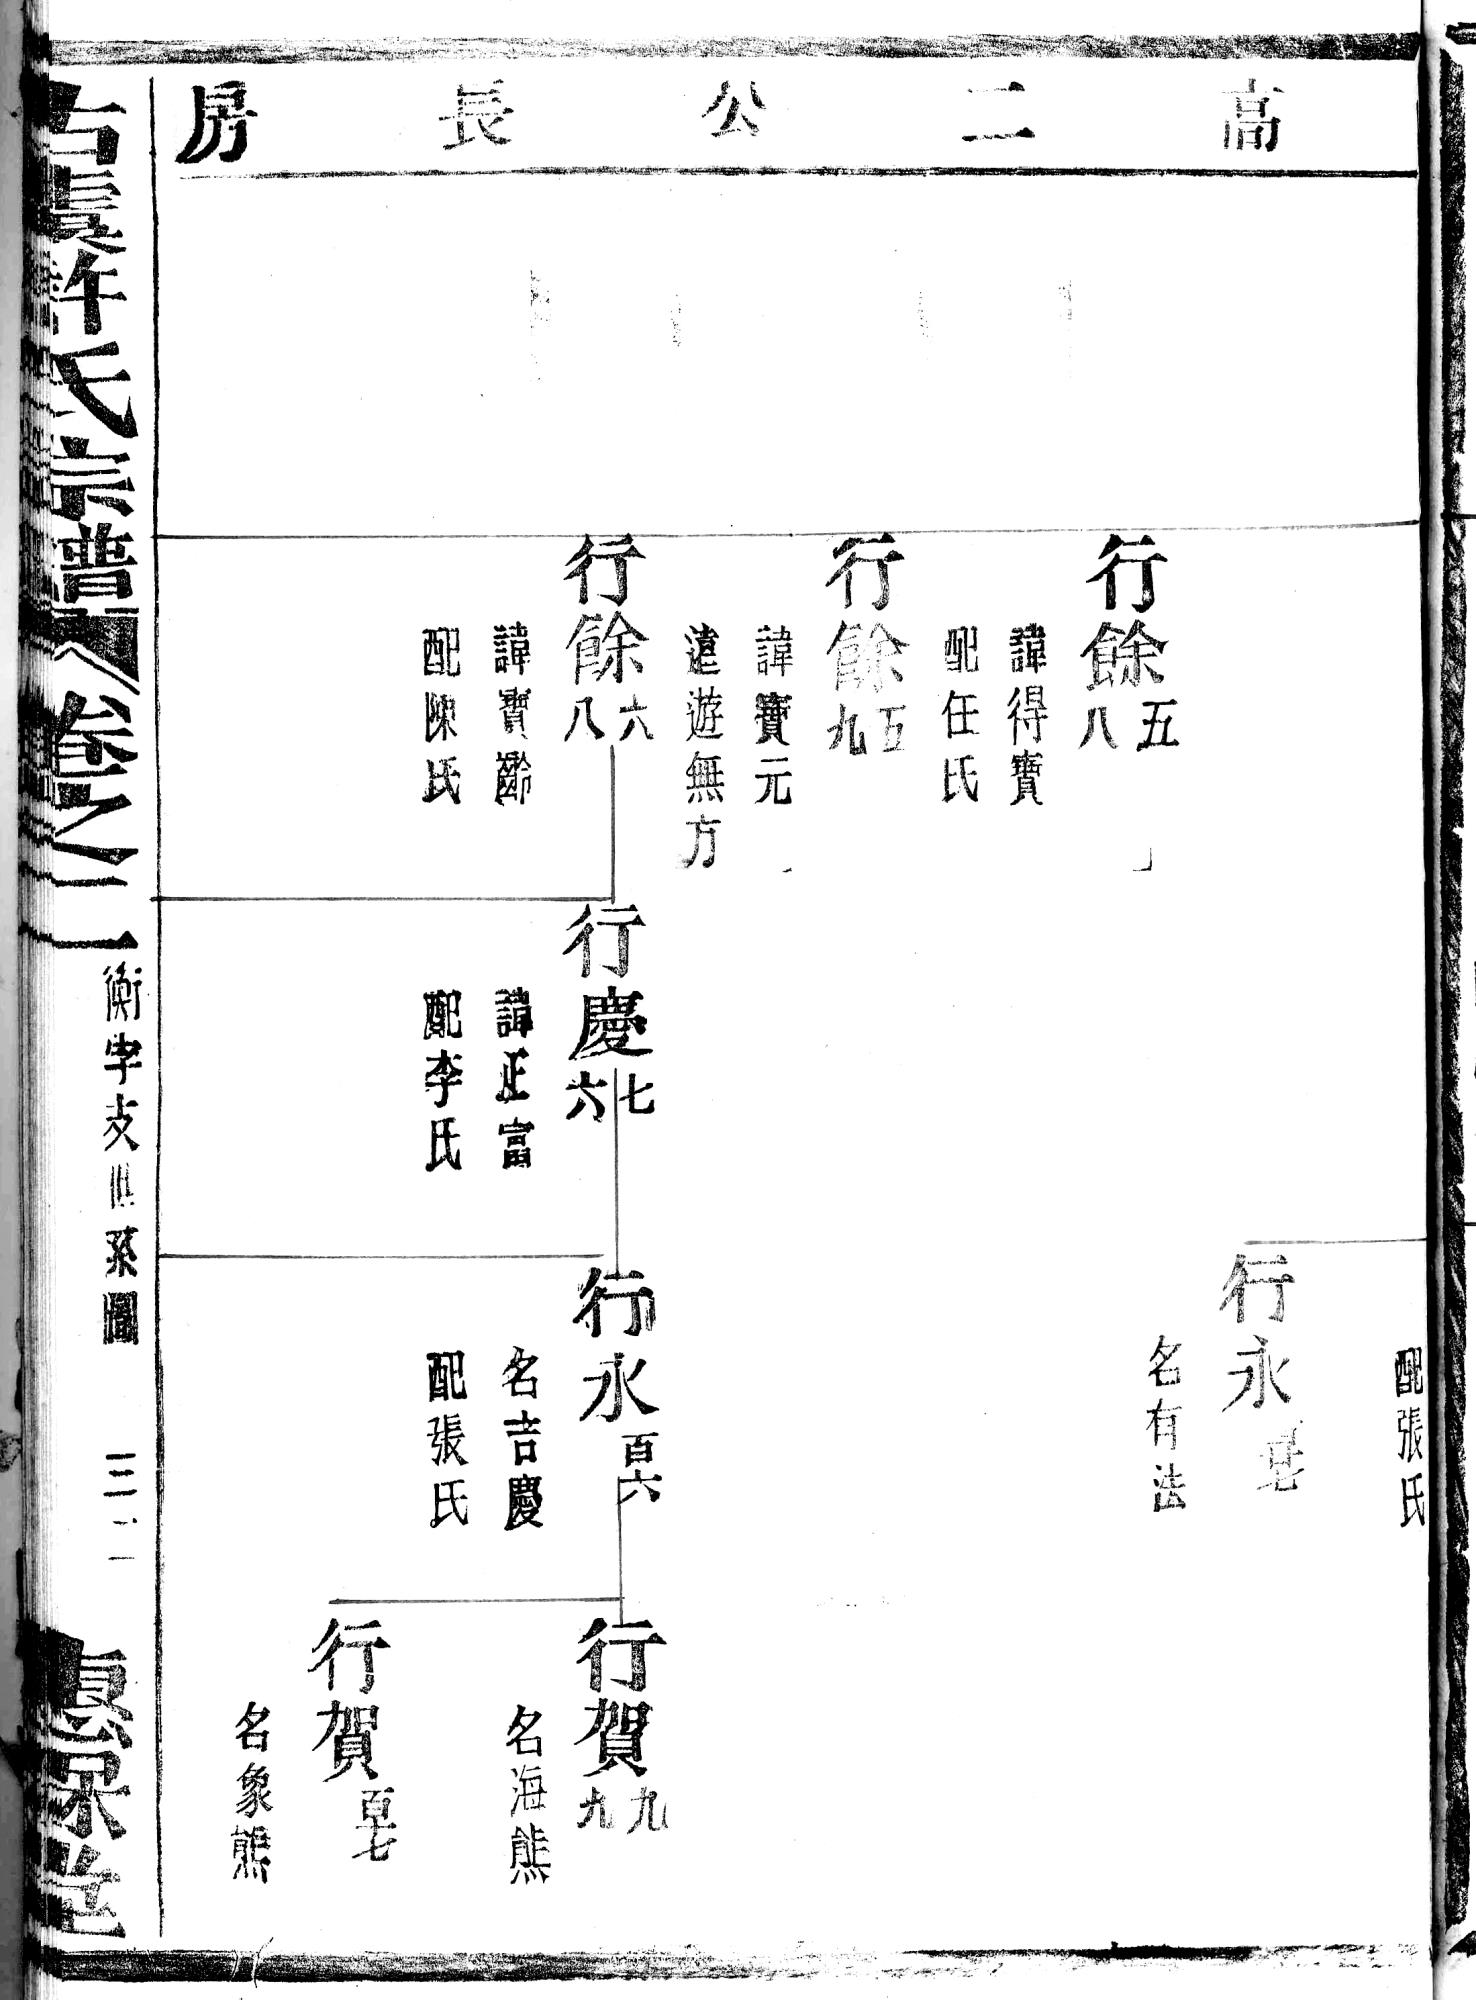 高二公長房
配張氏
行永
名有法
行餘五八
諱得寶
配任氏
行餘五九
諱寶元
遠遊無方
行餘六八
諱寶齡
配陳氏
行慶七六
諱正富
配李氏
行永百六
名吉慶
配張氏
行賀九九
名海熊
行賀百七
名象熊
古虞許氏宗譜
卷之二
衡字支世系圖
三十二
惠保堂